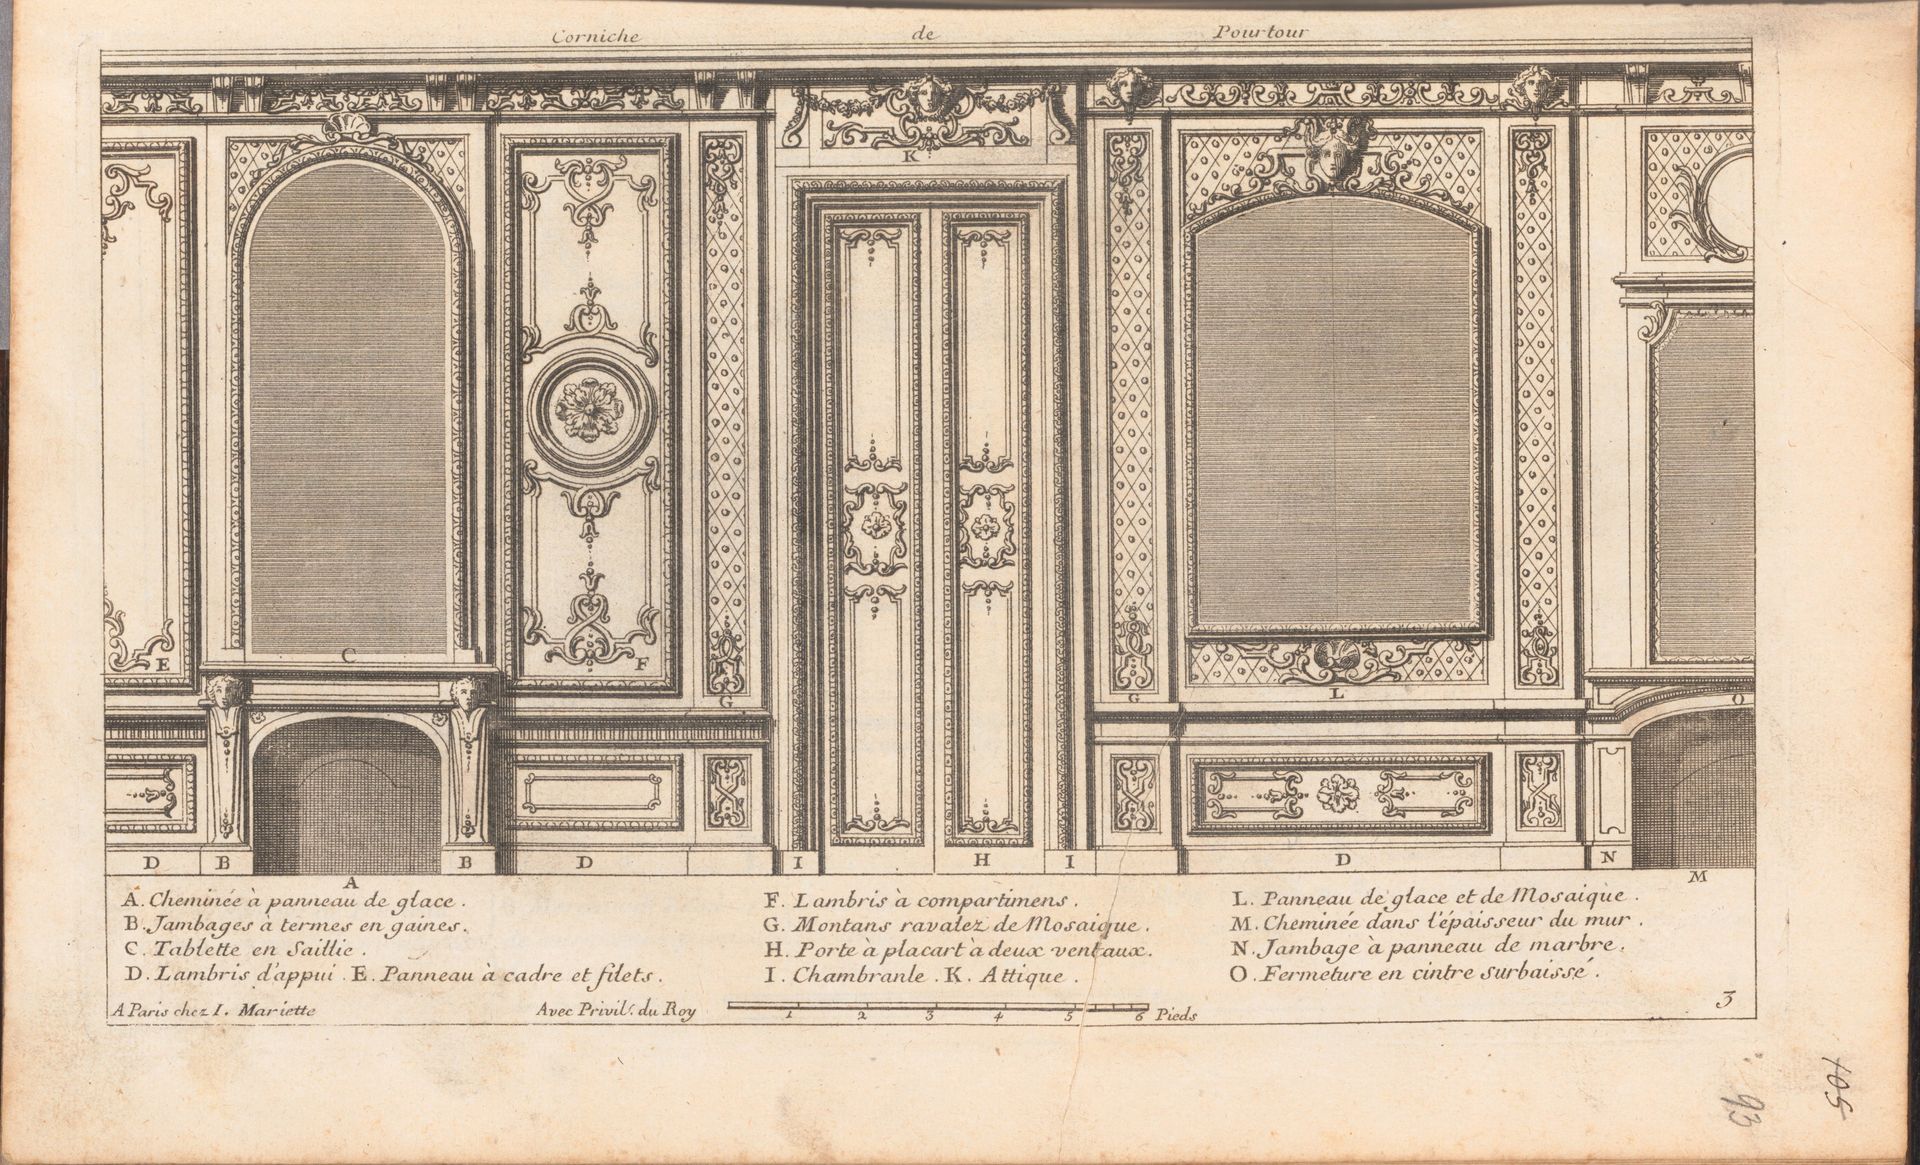 Corniche de Pourtour
K
E
C
F
G
G
L
O
D B B D I H I D N
A
M
A. Cheminée à panneau de glace.
B. Jambages à termes en gaines.
C. Tablette en Saillie.
D. Lambris d'appui. E. Panneau à cadre et filets.
F. Lambris à compartimens.
G. Montans ravalez de Mosaique.
H. Porte à placart à deux ventaux.
I. Chambranle. K. Attique.
L. Panneau de glace et de Mosaique.
M. Cheminée dans l'épaisseur du mur.
N. Jambage à panneau de marbre.
O. Fermeture en cintre surbaissé.
A Paris chez I. Mariette
Avec Privil. du Roy
1 2 3 4 5 6 Pieds
3
93
105